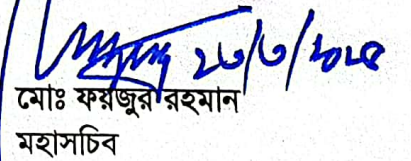 ২৩/৩/২০২৫
মোঃ ফরজুর রহমান
মহাসচিব